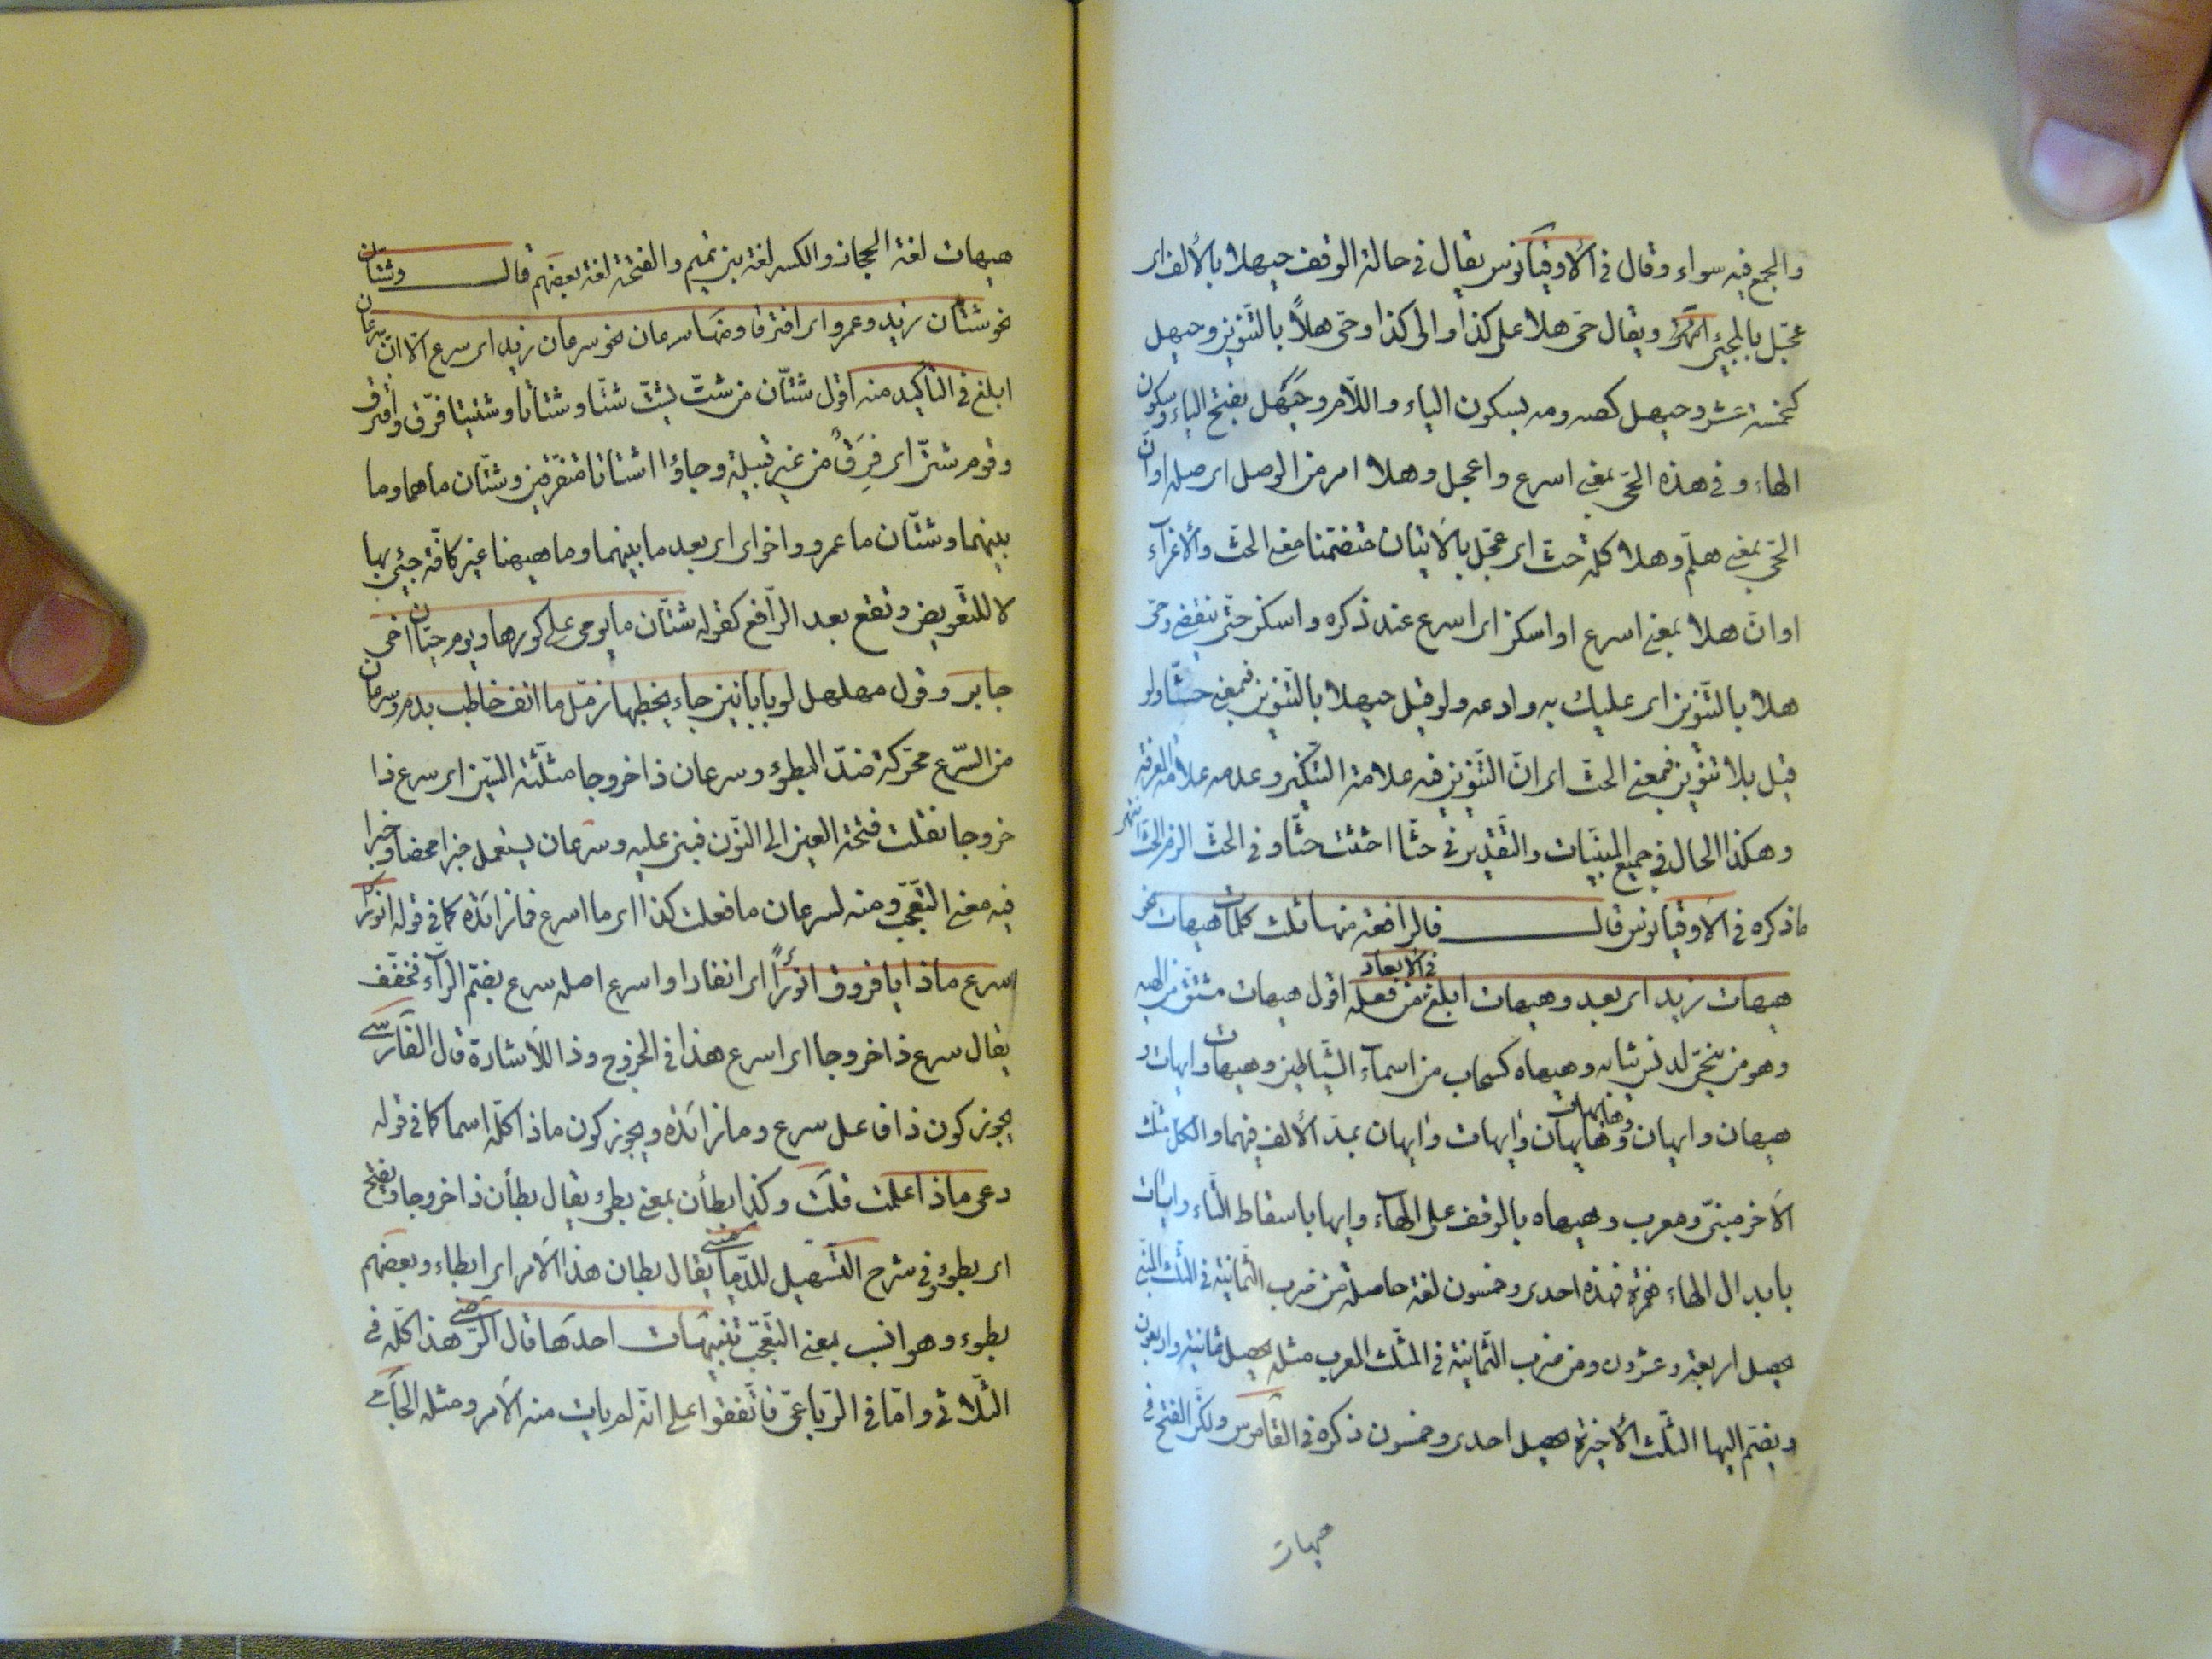 والجمع فيه سواء وقال في الأوقيانوس يقال في حالة الوقف حيهلا بالألف اى
عجّل بالمجئ انتهى ويقال حىّ هلا على كذا والى كذا وحىّ هلاً بالتنوين وحيهل
كخمسة عشر وحيهل كصه ومه بسكون الياء واللّام وحَيَّهل بفتح الياء وسكون
الهاء وفي هذه الحىّ بمعنى اسرع واعجل وهلا امر من الوصل اى صله اوانّ
الحىّ بمعنى هلمّ وهلا كلمة حثّ اى عجّل بالاتيان متضمنا معنى الحثّ والأغراء
اوانّ هلا بمعنى اسرع او اسكن اى اسرع عند ذكره واسكن حتّى ينقضى وحىّ
هلا بالتّنوين اى عليك به وادعه ولو قيل حيهلا بالتّنوين فمعنى حثّا ولو
قيل بلا تنوين فمعنى الحثّ اى انّ التّنوين فيه علامة التّنكير وعدمه علامة المعرفة
وهكذا الحال في جميع المبنيّات والتّقدير في حثّا احثث حثّا وفي الحثّ الزم الحثّ انتهى
ماذكره في الأوقيانوس قال فالرافعة منها ثلث كلمات هيهات نحو
هيهات زيد اى بعد وهيهات ابلغ من فعله في الابعاد اقول هيهات مشتق من الهيه
وهو من ينحّى لدنس ثيابه وهيهاه كسحاب من اسماء الشّياطين وهيهات وايهات و
هيهان وايهان وهايهات وهايهان وآيهات وآيهان بمدّ الألف فيهما والكل مثلّث
الآخر مبنىّ ومعرب وهيهاه بالوقف على الهاء وايها باسقاط التّاء وايئات
بابدال الهاء همزة فهذه احدى وخمسون لغة حاصلة من ضرب الثّمانية في الثّلث المبنىّ
يحصل اربعة وعشرون ومن ضرب الثّمانية في المثلّث المعرب مثله يحصل ثمانية واربعون
ويضمّ اليها الثّلث الأخيرة يحصل احدى وخمسون ذكره في القاموس ولكن الفتح في
هيهات
هيهات لغة الحجاز والكسر لغة بنى تميم والضمّة لغة بعضهم قال وشتان
نحو شتّان زيد وعمرو اى افترقا ومنها سرعان نحو سرعان زيد اى سرع الّا انّ سرعان
ابلغ في التأكيد منه اقول شتّان من شتّ يشتّ شتّا وشتاتا وشتيتا فرّق وافترق
وقوم شتىّ اى فِرَقٌ من غير قبيلة وجاؤا اشتاتا متفرّقين وشتّان ماهما وما
بينهما وشتّان ما عمرو واخوه اى بعد ما بينهما وما هيهنا غير كافّة جئ بها
لا للتّعويض وتقع بعد الرّافع كقوله شتّان ما يومى على كورها ويوم حيّان اخى
جابر وقول مهلهل لو بابانين جاء يخطبها زمّل ما انف خاطب بدم وسرعان
من السّرع محرّكة ضدّ البطوء وسرعان ذا خروجا مثلّثة السّين اى سرع ذا
خروجا نقلت فتحة العين الى النّون فبنى عليه وسرعان يستعمل خبرا محضا وخبرا
فيه معنى التّعجّب ومنه لسرعان ما فعلت كذا اى ما اسرع فما زائدة كما في قوله انورًا
سرع ماذا يا فروق انورًا اى انفارا واسرع اصله سرع بضمّ الرّاء فخفّف
يقال سرع ذا خروجا اى اسرع هذا في الخروج وذا للأشارة قال الفارسىّ
يجوز كون ذا فاعل سرع وما زائدة ويجوز كون ماذا كلّه اسما كما في قوله
دعى ماذا علمت قلت وكذا بطأن بمعنى بطئ يقال بطأن ذا خروجا وبفتح
اى بطوء وفي شرح التّسهيل للدّمامينى يقال بطان هذا الأمر اى ابطاء وبعضهم
بطوء وهو انسب بمعنى التّعجّب تنبيهات احدها قال الرّضى هذا كلّه في
الثّلاثى وامّا في الرّباعىّ فاتّفقوا على انّه لم يأت منه الأمر ومثله الجامى